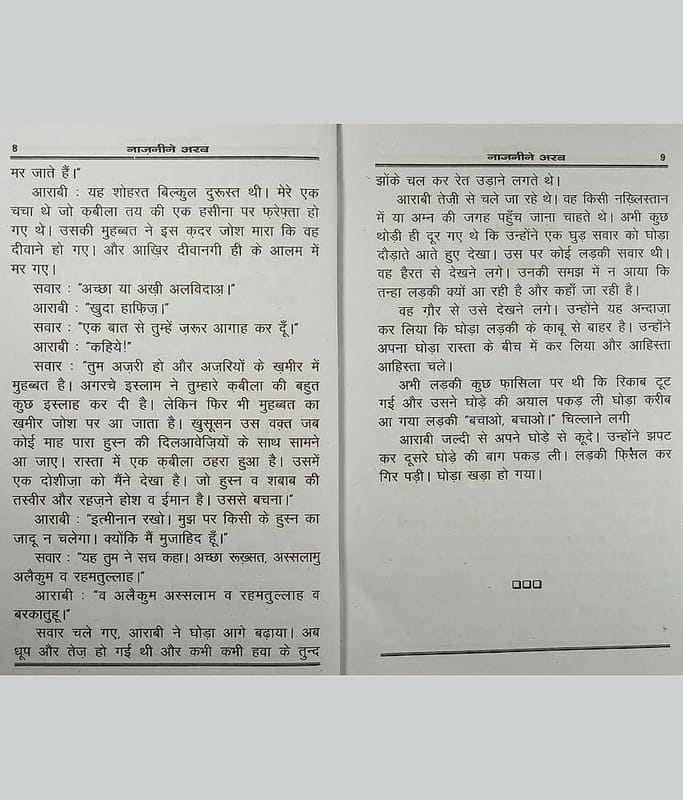 8
नाज़नीने अरब
मर जाते हैं।”
आराबी : यह शोहरत बिल्कुल दुरूस्त थी। मेरे एक
चचा थे जो क़बीला तय की एक हसीना पर फ़रेफ़्ता हो
गए थे। उसकी मुहब्बत ने इस क़दर जोश मारा कि वह
दीवाने हो गए। और आख़िर दीवानगी ही के आलम में
मर गए।
सवार : “अच्छा या अख़ी अलविदाअ़।”
आराबी : “खुदा हाफ़िज़।”
सवार : “एक बात से तुम्हें ज़रूर आगाह कर दूँ।”
आराबी : “कहिये!”
सवार : “तुम अज़री हो और अज़रियों के ख़मीर में
मुहब्बत है। अगरचे इस्लाम ने तुम्हारे क़बीला की बहुत
कुछ इस्लाह कर दी है। लेकिन फिर भी मुहब्बत का
ख़मीर जोश पर आ जाता है। खुसूसन उस वक़्त जब
कोई माह पारा हुस्न की दिलआवेज़ियों के साथ सामने
आ जाए। रास्ता में एक क़बीला ठहरा हुआ है। उसमें
एक दोशीज़ा को मैंने देखा है। जो हुस्न व शबाब की
तस्वीर और रहज़ने होश व ईमान है। उससे बचना।”
आराबी : “इत्मीनान रखो। मुझ पर किसी के हुस्न का
जादू न चलेगा। क्योंकि मैं मुजाहिद हूँ।”
सवार : “यह तुम ने सच कहा। अच्छा रूख़्सत, अस्सलामु
अलैकुम व रहमतुल्लाह।”
आराबी : “व अलैकुम अस्सलाम व रहमतुल्लाह व
बरकातुहू।”
सवार चले गए, आराबी ने घोड़ा आगे बढ़ाया। अब
धूप और तेज़ हो गई थी और कभी कभी हवा के तुन्द
नाज़नीने अरब
9
झोंके चल कर रेत उड़ाने लगते थे।
आराबी तेज़ी से चले जा रहे थे। वह किसी नख़्लिस्तान
में या अम्न की जगह पहुँच जाना चाहते थे। अभी कुछ
थोड़ी ही दूर गए थे कि उन्होंने एक घुड़ सवार को घोड़ा
दौड़ाते आते हुए देखा। उस पर कोई लड़की सवार थी।
वह हैरत से देखने लगे। उनकी समझ में न आया कि
तन्हा लड़की क्यों आ रही है और कहाँ जा रही है।
वह ग़ौर से उसे देखने लगे। उन्होंने यह अन्दाज़ा
कर लिया कि घोड़ा लड़की के क़ाबू से बाहर है। उन्होंने
अपना घोड़ा रास्ता के बीच में कर लिया और आहिस्ता
आहिस्ता चले।
अभी लड़की कुछ फ़ासिला पर थी कि रिकाब टूट
गई और उसने घोड़े की अयाल पकड़ ली घोड़ा क़रीब
आ गया लड़की “बचाओ, बचाओ।” चिल्लाने लगी
आराबी जल्दी से अपने घोड़े से कूदे। उन्होंने झपट
कर दूसरे घोड़े की बाग पकड़ ली। लड़की फिसल कर
गिर पड़ी। घोड़ा खड़ा हो गया।